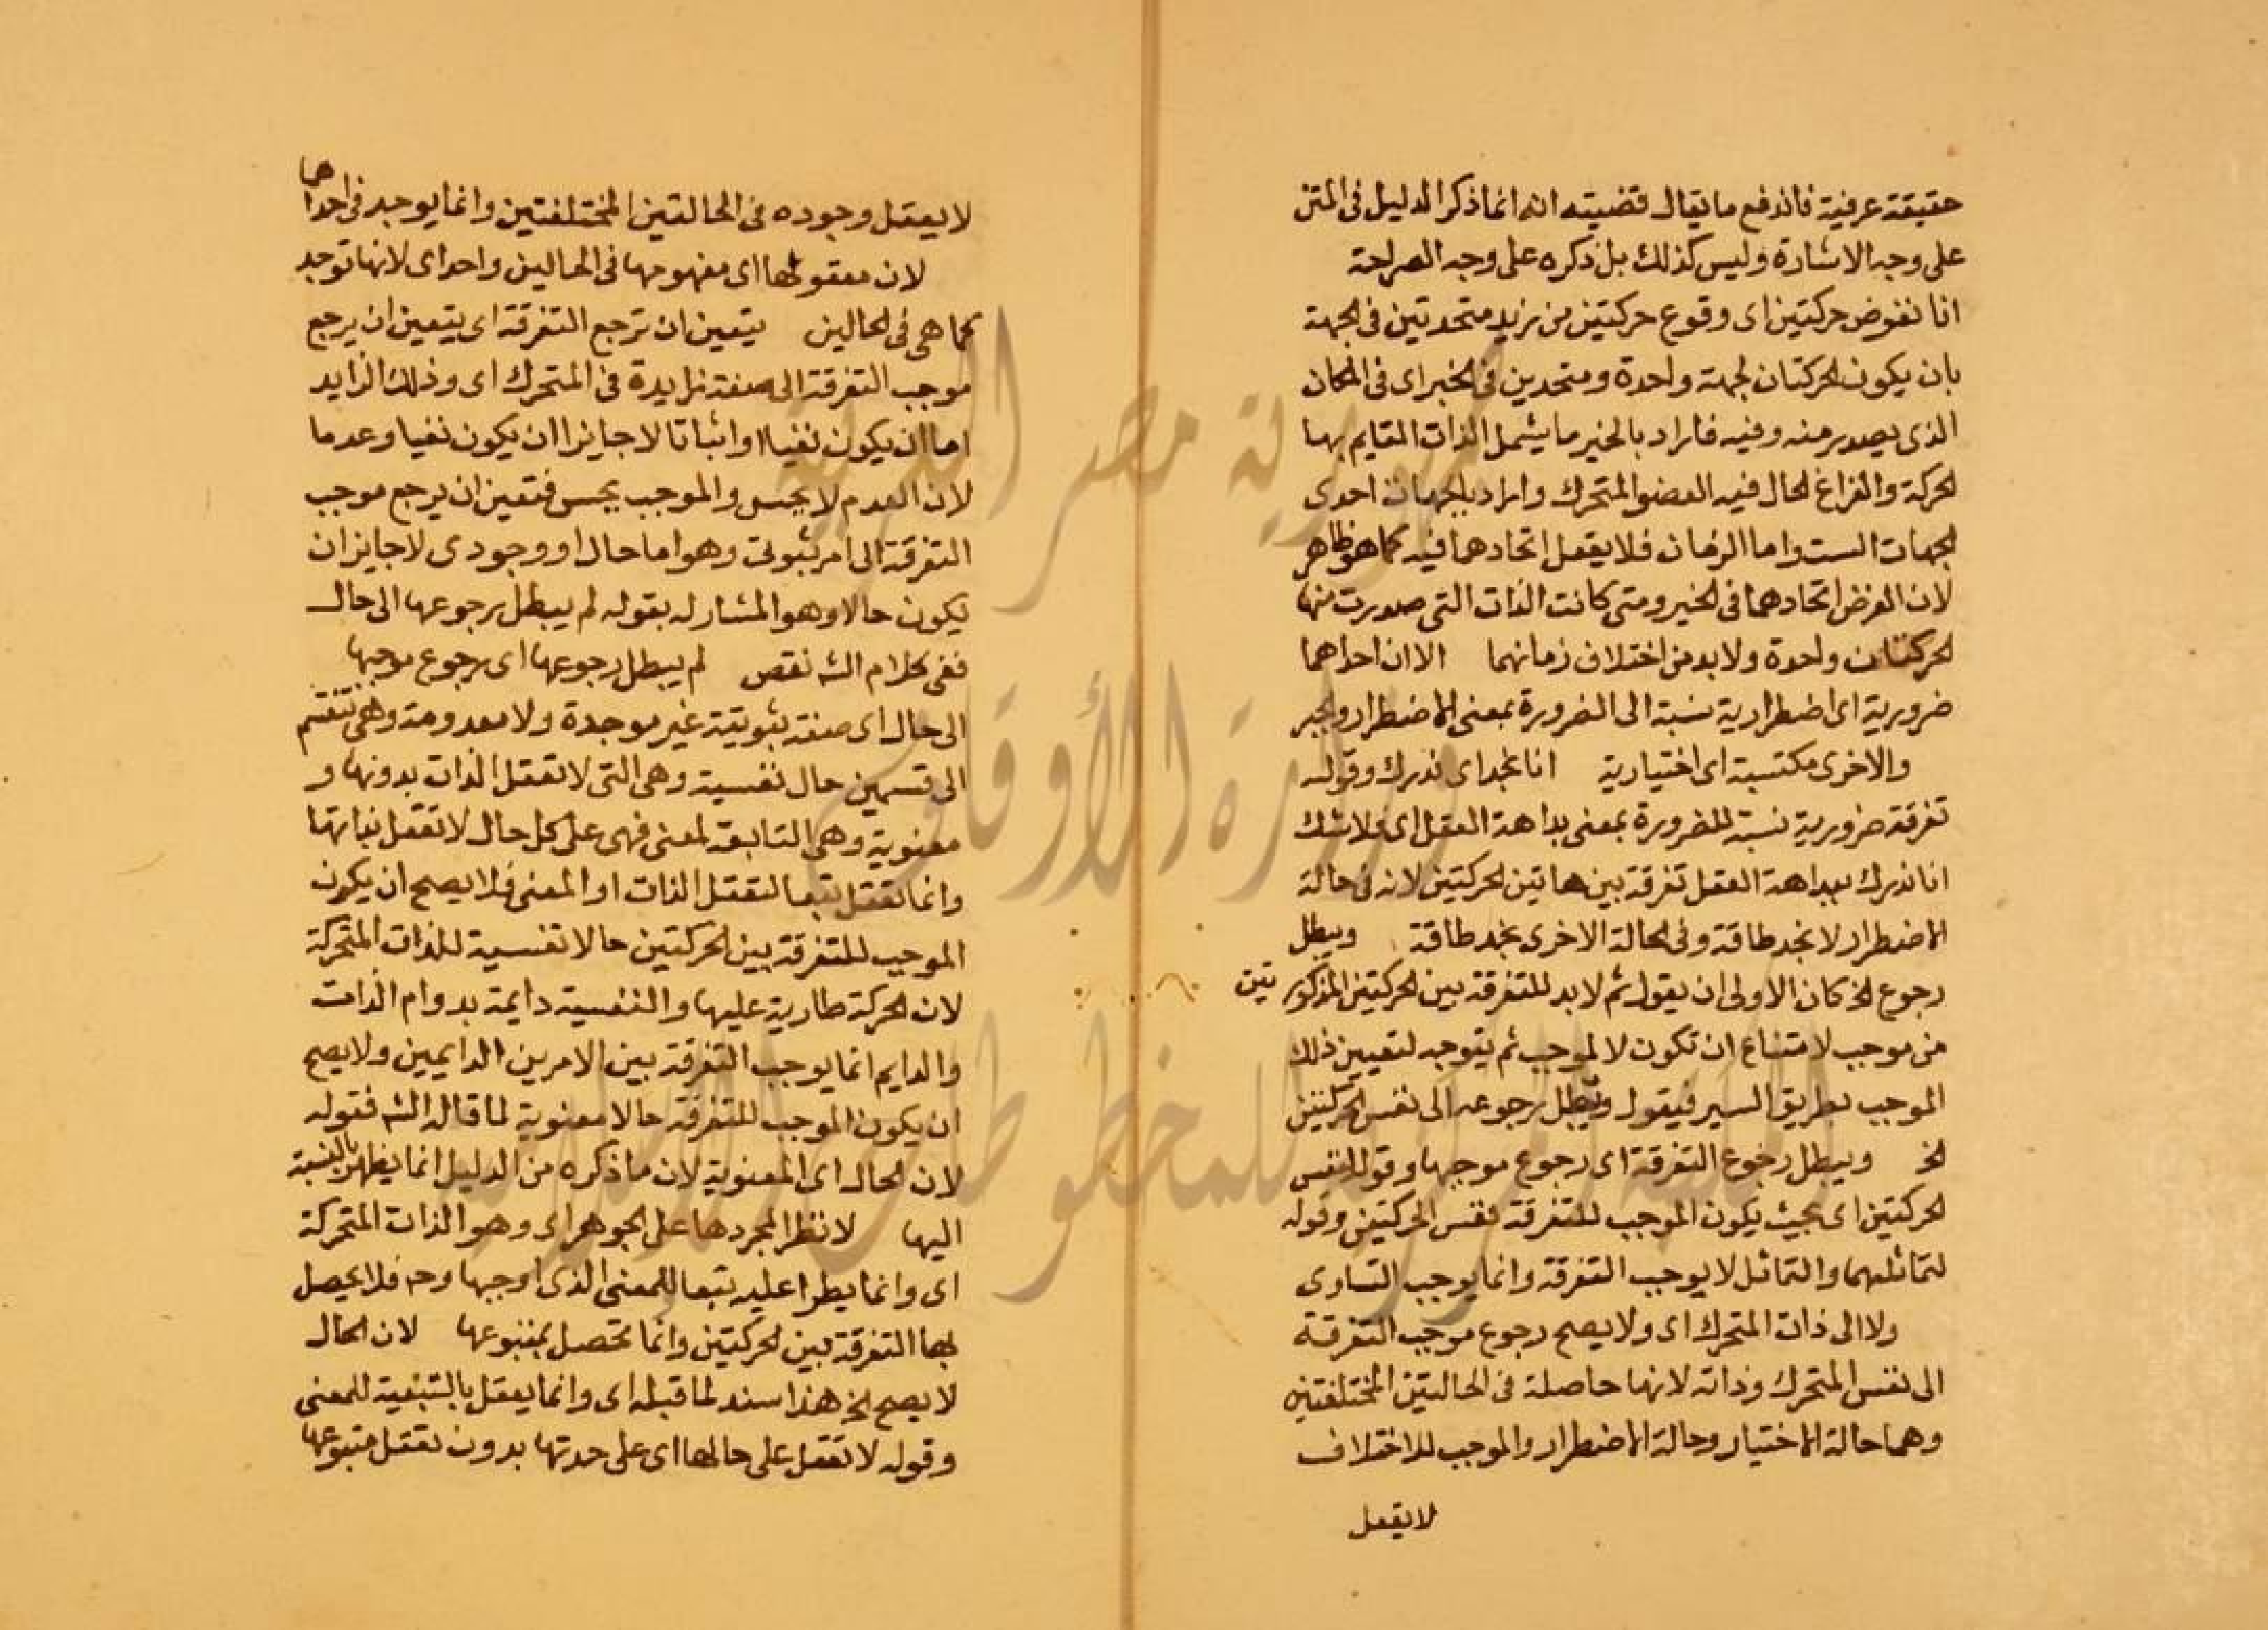 حقيقة عرفية فاندفع ما يقال قضيته انه انما ذكر الدليل فى المتن
على وجه الاشارة وليس كذلك بل ذكره على وجه الصراحة
انا نفرض حركتين اى وقوع حركتين من زيد متحدتين فى الجهة
بان يكون الحركتان لجهة واحدة ومتحدين فى الحيز اى فى المكان
الذى يصدر منه وفيه فاراد بالحيز ما يشمل الذات القايم بها
الحركة والفراغ الحال فيه العضو المتحرك واراد بالجهات احدى
الجهات الست واما الزمان فلا يعقل اتحادهما فيه كما هو ظاهر
لان الفرض اتحادهما فى الحيز ومتى كانت الذات التى صدرت منها
الحركتان واحدة ولا بد من اختلاف زمانهما الا ان احداهما
ضرورية اى اضطرارية نسبة الى الضرورة بمعنى الاضطرار والجبر
والاخرى مكتسبة اى اختيارية انا نجد اى ندرك وقوله
تفرقة ضرورية نسبة للضرورة بمعنى بداهة العقل اى فلا شك
انا ندرك ببداهة العقل تفرقة بين هاتين الحركتين لانه فى حالة
الاضطرار لا نجد طاقة وفى الحالة الاخرى نجد طاقة ويبطل
رجوع الخ كان الاولى ان يقول ثم لا بد للتفرقة بين الحركتين المذكورتين
من موجب لامتناع ان تكون لا لموجب ثم يتوجه لتعيين ذلك
الموجب بطريق السبر فيقول ويبطل رجوعه الى نفس الحركتين
الخ ويبطل رجوع التفرقة اى رجوع موجبها وقوله لنفس
الحركتين اى بحيث يكون الموجب للتفرقة نفس الحركتين وقوله
لتماثلهما والتماثل لا يوجب التفرقة وانما يوجب التساوى
ولا الى ذات المتحرك اى ولا يصح رجوع موجب التفرقة
الى نفس المتحرك وذاته لانها حاصلة فى الحالتين المختلفتين
وهما حالة الاختيار وحالة الاضطرار والموجب للاختلاف
لا يعقل
لا يعقل وجوده فى الحالتين المختلفتين وانما يوجد فى احداهما
لان معقولها اى مفهومها فى الحالين واحد اى لانها توجد
كما هى فى الحالين يتعين ان ترجع التفرقة اى يتعين ان يرجع
موجب التفرقة الى صفة زايدة فى المتحرك اى وذلك الزايد
اما ان يكون نفيا او اثباتا لا جايزا ان يكون نفيا وعدما
لان العدم لا يحس والموجب يحس فتعين ان يرجع موجب
التفرقة الى امر ثبوتى وهو اما حال او وجودى لا جايز ان
يكون حالا وهو المشار له بقوله لم يبطل رجوعها الى حال
ففى كلام الشه نقص لم يبطل رجوعها اى رجوع موجبها
الى حال اى صفة ثبوتية غير موجدة ولا معدومة وهى تنقسم
الى قسمين حال نفسية وهى التى لا تعقل الذات بدونها و
معنوية وهى التابعة لمعنى فهى على كل حال لا تعقل بذاتها
وانما تعقل تبعا لتعقل الذات او المعنى فلا يصح ان يكون
الموجب للتفرقة بين الحركتين حالا نفسية للذات المتحركة
لان الحركة طارية عليها والنفسية دايمة بدوام الذات
والدايم انما يوجب التفرقة بين الامرين الدايمين ولا يصح
ان يكون الموجب للتفرقة حالا معنوية لما قال الشه فقوله
لان الحال اى المعنوية لان ما ذكره من الدليل انما يظهر بالنسبة
اليها لا تطرا لمجردها على الجوهر اى وهو الذات المتحركة
اى وانما يطرا عليه تبعا للمعنى الذى اوجبها وح فلا يحصل
بها التفرقة بين الحركتين وانما تحصل بمتبوعها لان الحال
لا يصح الخ هذا سند لما قبله اى وانما يعقل بالتبعية للمعنى
وقوله لا تعقل على حالها اى على حدتها بدون تعقل متبوعها